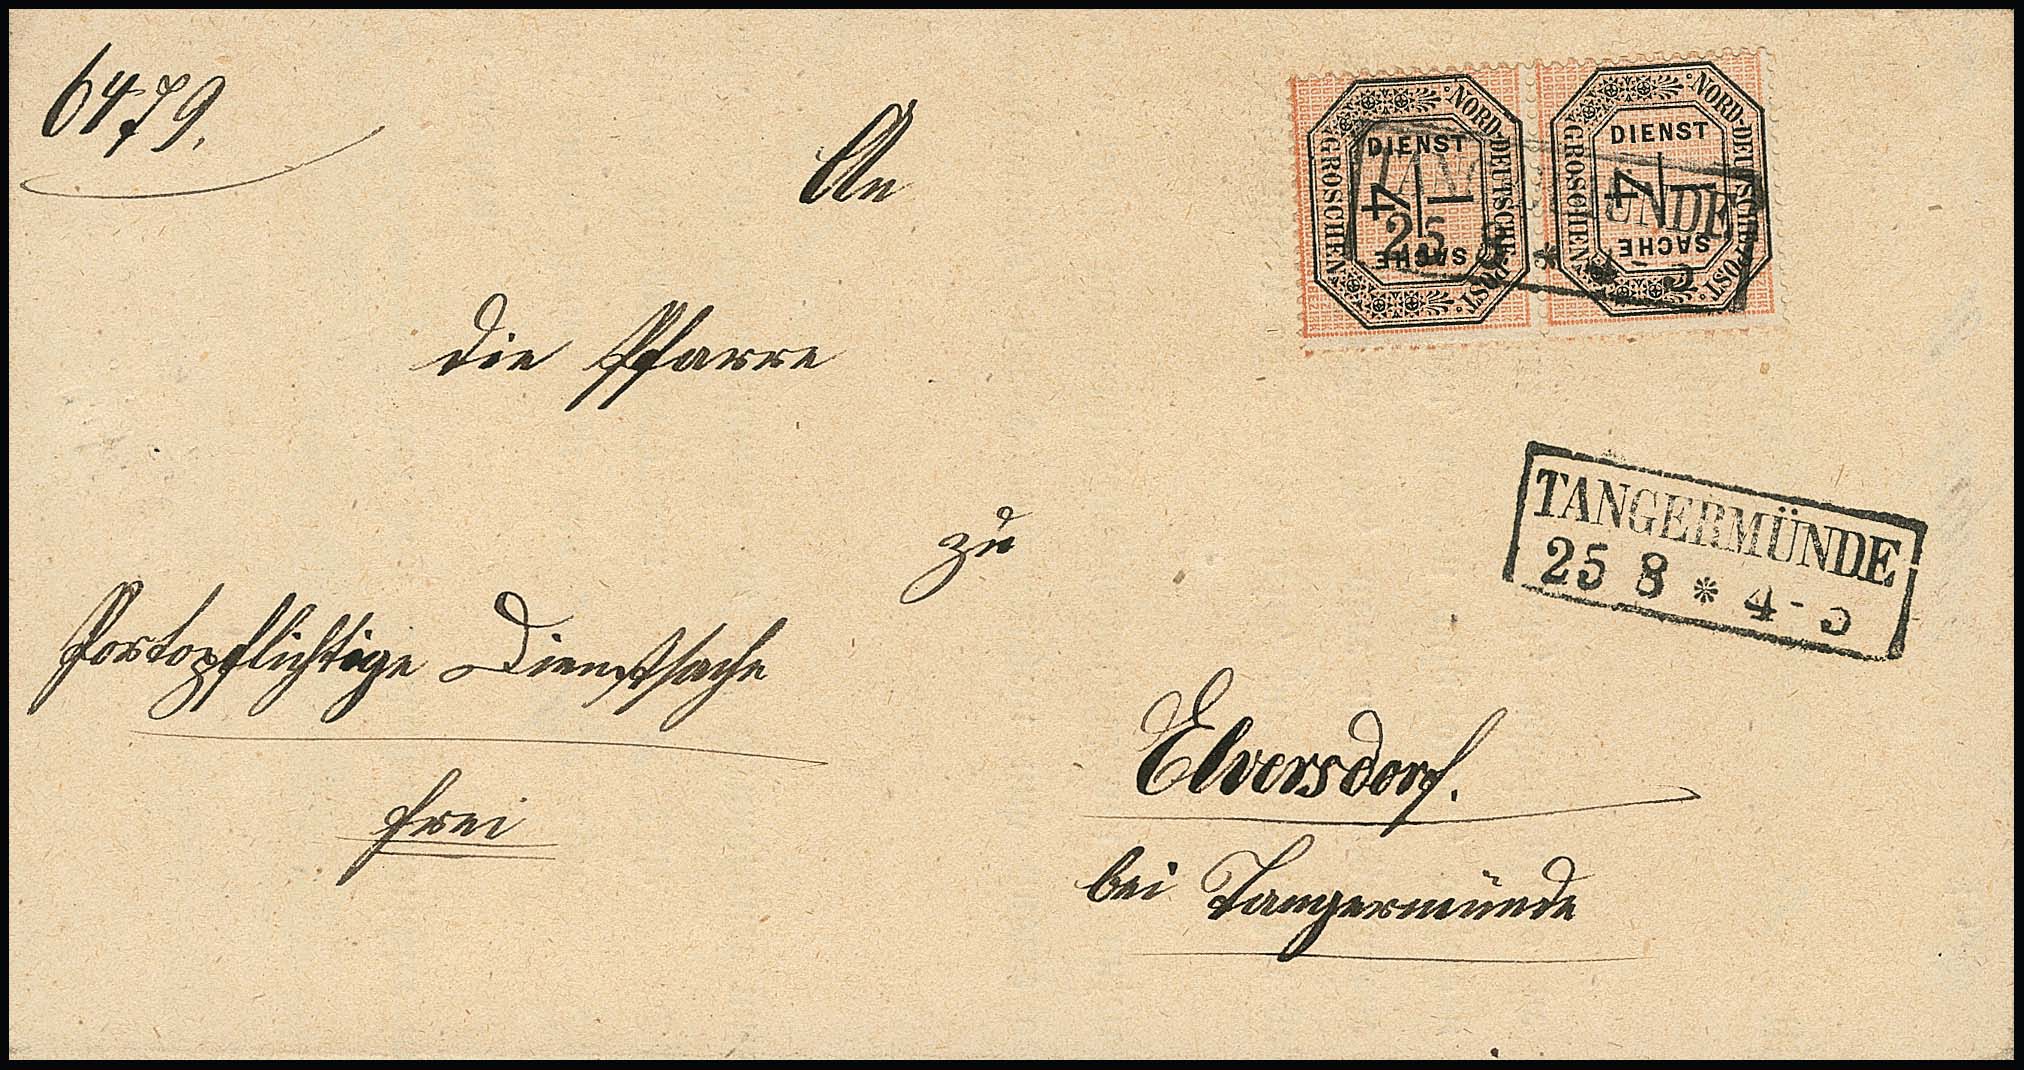 6479.
An
die Pfarre
zu
Portopflichtige Dienstsache
frei
Elversdorf.
bei Tangermünde
NORD-DEUTSCHE-POST
GROSCHEN
DIENST
1/4
SACHE
NORD-DEUTSCHE-POST
GROSCHEN
DIENST
1/4
SACHE
TAN UNDE
25 8 * 4-5
TANGERMÜNDE
25 8 * 4-5